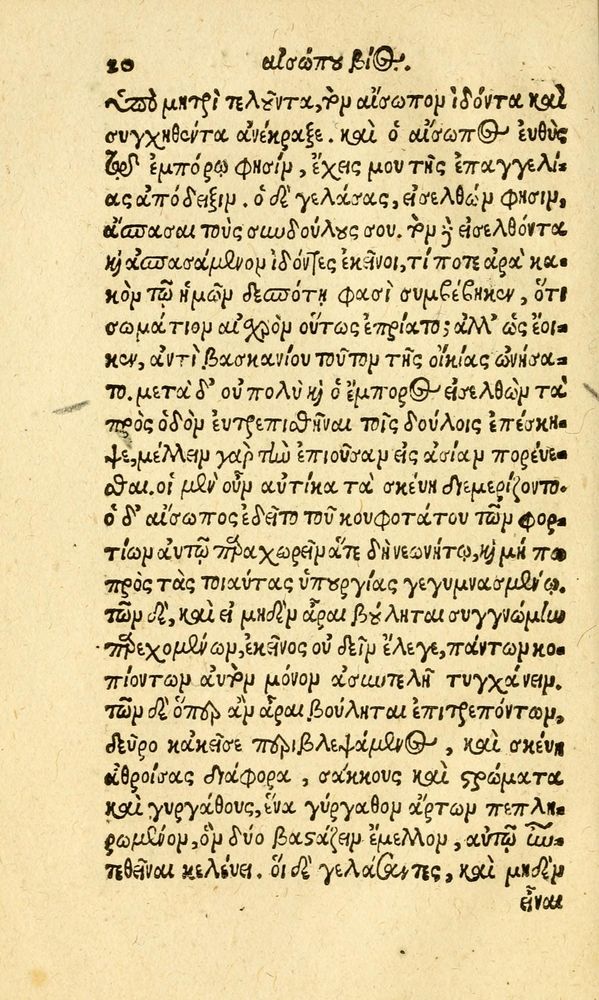 20 αἰσώπου βίος.
ὑπὸ μητρὶ τελοῦντα, τὸν αἴσωπον ἰδόντα καὶ
συγχηθέντα ἀνέκραξε. καὶ ὁ αἴσωπος εὐθὺς
τῷ ἐμπόρῳ φησὶν, ἔχεις μου τῆς ἐπαγγελί-
ας ἀπόδειξιν. ὁ δὲ γελάσας, εἰσελθὼν φησιν,
ἄσπασαι τοὺς συνδούλους σου. τὸν δὲ εἰσελθόντα
καὶ ἀσπασάμενον ἰδόντες ἐκεῖνοι, τί ποτε ἄρα κα-
κὸν τῷ ἡμῶν δεσπότῃ φασὶ συμβέβηκεν, ὅτι
σωμάτιον αἰσχρὸν οὕτως ἐπρίατο; ἀλλ' ὡς ἔοι-
κεν, ἀντὶ βασκανίου τοῦτον τῆς οἰκίας ὠνήσα-
το. μετὰ δ' οὐ πολὺ καὶ ὁ ἔμπορος εἰσελθὼν τὰ
πρὸς ὁδὸν εὐτρεπισθῆναι τοῖς δούλοις ἐπέσκη-
ψε, μέλλειν γὰρ τὴν ἐπιοῦσαν εἰς ἀσίαν πορεύε-
σθαι. οἱ μὲν οὖν αὐτίκα τὰ σκεύη διεμερίζοντο.
ὁ δ' αἴσωπος ἐδεῖτο τοῦ κουφοτάτου τῶν φορ-
τίων αὐτῷ παραχωρεῖν ἅτε δὴ νεωνήτῳ, καὶ μή πω
πρὸς τὰς τοιαύτας ὑπουργίας γεγυμνασμένῳ.
τῶν δὲ, καὶ εἰ μηδὲν ἆραι βούληται συγγνώμην
παρεχομένων, ἐκεῖνος οὐ δεῖν ἔλεγε, πάντων κο-
πιόντων αὐτὸν μόνον ἀσυντελῆ τυγχάνειν.
τῶν δὲ ὅπερ ἂν ἆραι βούληται ἐπιτρεπόντων,
δεῦρο κἀκεῖσε περιβλεψάμενος, καὶ σκεύη
ἀθροίσας διάφορα, σάκκους καὶ στρώματα
καὶ γυργάθους, ἕνα γύργαθον ἄρτων πεπλη-
ρωμένον, ὃν δύο βαστάζειν ἔμελλον, αὐτῷ ἐπι-
τεθεῖναι κελεύει. οἱ δὲ γελάσαντες, καὶ μηδὲν
εἶναι